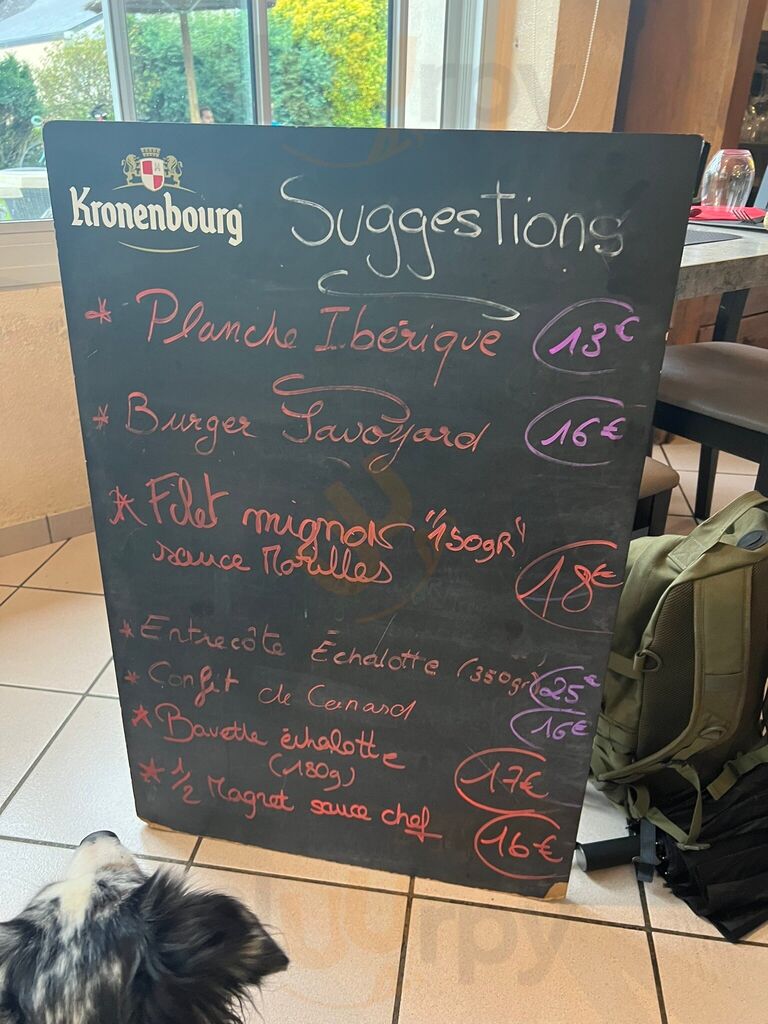 Kronenbourg
Suggestions
* Planche Ibérique 13€
* Burger Savoyard 16€
* Filet mignon "150gR"
sauce Morilles 18€
* Entrecôte Échalotte (350gr) 25€
* Confit de Canard 16€
* Bavette échalotte
(180g) 17€
* 1/2 Magret sauce chef 16€